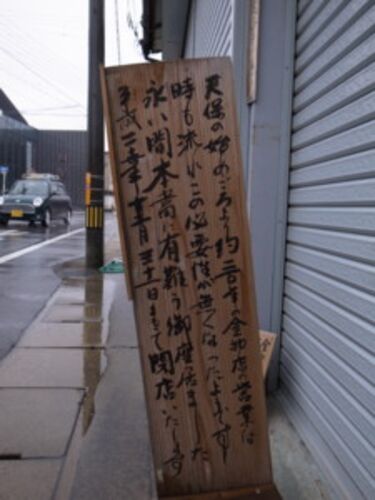 天保の始めごろより約二百年の金物店の営業は
時も流れこの必要性が無くなったようです
永い間本当に有難う御座居ました
平成二十年十二月三十一日をもって閉店いたします